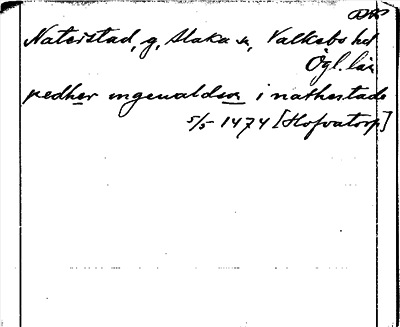 Naterstad, g, Slaka sn, Valkebo hd
Ögl. län
pedher ingewaldson i nathestade
5/5 1474 [Hofvatorp]